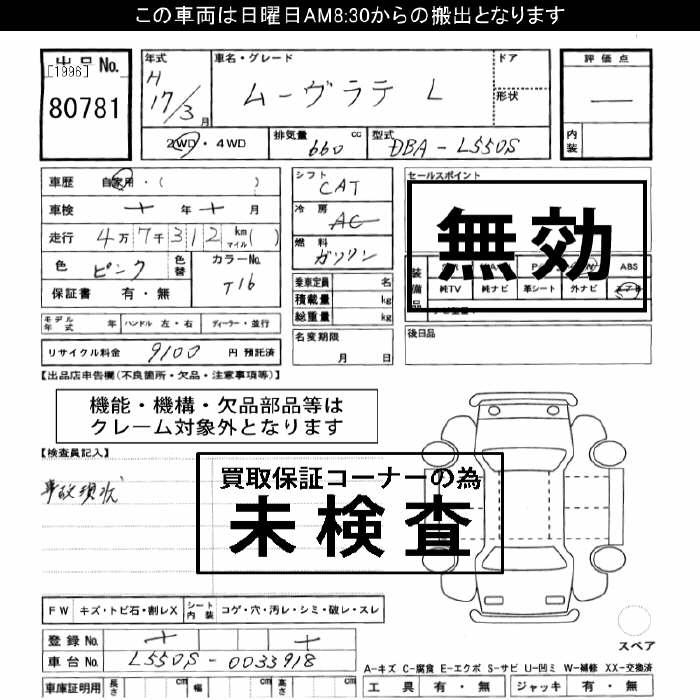 この車両は日曜日AM8:30からの搬出となります
出品No.
[1996]
80781
年式
H
17/3月
車名・グレード
ムーヴラテ L
ドア
形状
評価点
―
内装
2WD・4WD
排気量 cc
660
型式
DBA-L550S
車歴 自家用・( )
車検 年 月
走行 4万7千312 km マイル( )
色 ピンク 色替
カラーNo. T16
保証書 有・無
シフト
CAT
冷房
AC
燃料
ガソリン
乗車定員 名
積載量 kg
総重量 kg
セールスポイント
無効
装備品
ABS
純TV 純ナビ 革シート 外ナビ
モデル年式 年 ハンドル 左・右 ディーラー・並行
リサイクル料金 9100 円 預託済
名変期限
月 日
後日品
【出品店申告欄(不良箇所・欠品・注意事項等)】
機能・機構・欠品部品等は
クレーム対象外となります
【検査員記入】
事故現状
買取保証コーナーの為
未検査
FW キズ・トビ石・割レX シート内装 コゲ・穴・汚レ・シミ・破レ・スレ
登録No.
車台No. L550S-0033918
車庫証明用 長さ cm 幅 cm 高さ cm
スペア
A-キズ C-腐食 E-エクボ S-サビ U-凹ミ W-補修 XX-交換済
工具 有・無 ジャッキ 有・無